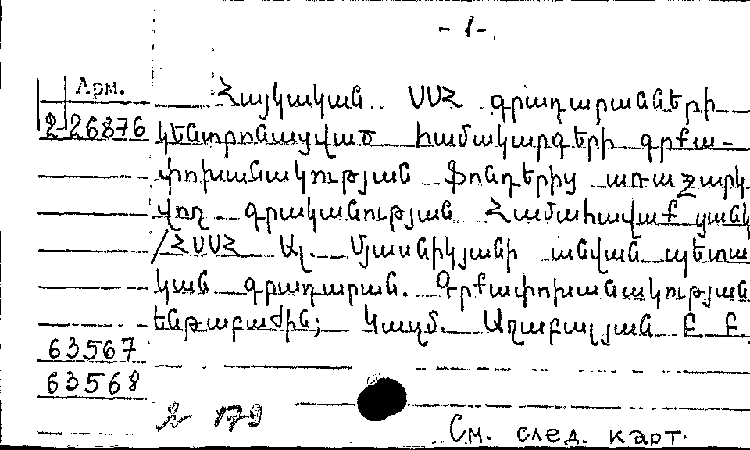 - 1 -
Арм.
Հայկական ՍՍՀ գրադարանների
2-26876 կենտրոնացված համակարգերի գրքա-
փոխանակության ֆոնդերից առաջարկ
վող գրականության Համահավաք ցանկ
/ՀՍՍՀ Ալ. Մյասնիկյանի անվան պետա
կան գրադարան. Գրքափոխանակության
ենթաբաժին; Կազմ. Աղաբալյան Է. Բ.
63567
63568
179
См. след. карт.